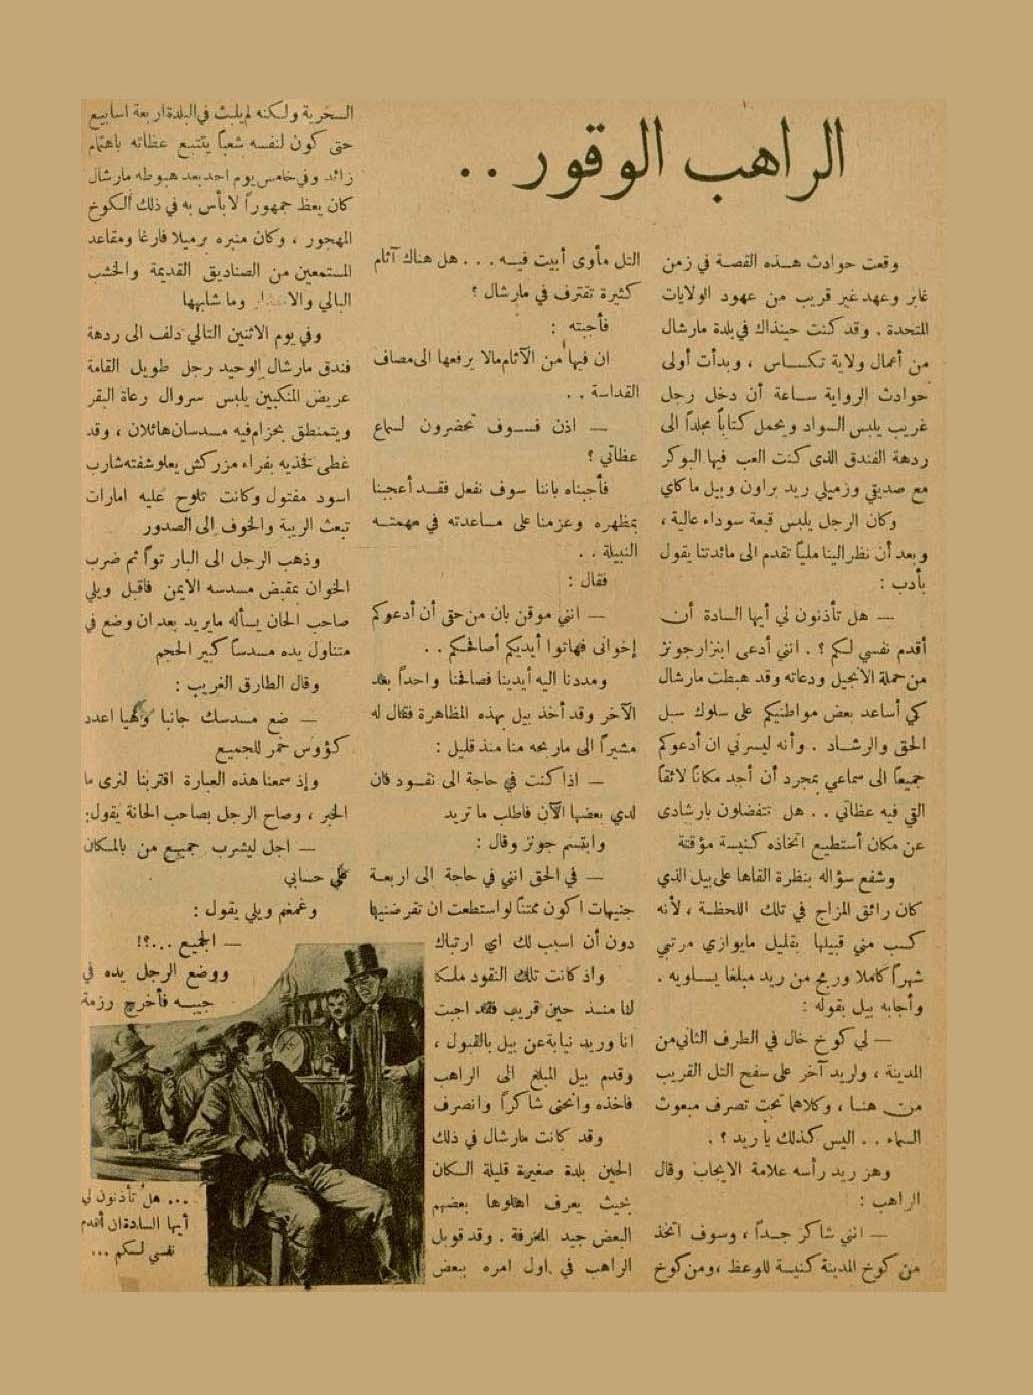 الراهب الوقور . .
وقعت حوادث هذه القصة في زمن
غابر وعهد غير قريب من عهود الولايات
المتحدة . وقد كنت حينذاك في بلدة مارشال
من أعمال ولاية تكساس ، وبدأت أولى
حوادث الرواية ساعة أن دخل رجل
غريب يلبس السواد ويحمل كتاباً مجلداً الى
ردهة الفندق الذى كنت العب فيها البوكر
مع صديقي وزميلي ريد براون وبيل ماكاي
وكان الرجل يلبس قبعة سوداء عالية ،
وبعد أن نظر الينا ملياً تقدم الى مائدتنا يقول
بأدب :
— هل تأذنون لي أيها السادة أن
أقدم نفسي لكم ؟ . انني أدعى ابنزار جونز
من حملة الانجيل ودعاته وقد هبطت مارشال
كي أساعد بعض مواطنيكم على سلوك سبل
الحق والرشاد . وأنه ليسرني ان أدعوكم
جميعاً الى سماعي بمجرد أن أجد مكاناً لائقاً
القي فيه عظاتي . . هل تتفضلون بارشادى
عن مكان أستطيع اتخاذه كنيسة مؤقتة
وشفع سؤاله بنظرة القاها على بيل الذي
كان رائق المزاج في تلك اللحظة ، لأنه
كسب مني قبيلها بقليل مايوازي مرتبي
شهراً كاملا وربح من ريد مبلغا يساويه .
وأجابه بيل بقوله :
— لي كوخ خال في الطرف الثاني من
المدينة ، ولريد آخر على سفح التل القريب
من هنا ، وكلاهما تحت تصرف مبعوث
السماء . . اليس كذلك يا ريد ؟ .
وهز ريد رأسه علامة الايجاب وقال
الراهب :
— انني شاكر جداً ، وسوف اتخذ
من كوخ المدينة كنيسة للوعظ ، ومن كوخ
التل مأوى أبيت فيه . . . هل هناك آثام
كثيرة تقترف في مارشال ؟
فأجبته :
ان فيها من الآثام مالا يرفعها الى مصاف
القداسة . .
— اذن فسوف تحضرون لسماع
عظاتي ؟
فأجبناه باننا سوف نفعل فقد أعجبنا
بمظهره وعزمنا على مساعدته في مهمته
النبيلة . .
فقال :
— انني موقن بان من حقى أن أدعوكم
إخوانى فهاتوا أيديكم أصافحكم . .
ومددنا اليه أيدينا فصافحنا واحداً بعد
الآخر وقد أخذ بيل بهذه المظاهرة فقال له
مشيراً الى ماربحه منا منذ قليل :
— اذا كنت في حاجة الى نقود فان
لدي بعضها الآن فاطلب ما تريد
وابتسم جونز وقال :
— في الحق انني في حاجة الى اربعة
جنيهات اكون ممتناً لو استطعت ان تقرضنيها
دون أن اسبب لك اي ارتباك
واذ كانت تلك النقود ملكا
لنا منذ حين قريب فقد اجبت
انا وريد نيابة عن بيل بالقبول ،
وقدم بيل المبلغ الى الراهب
فاخذه وانحنى شاكراً وانصرف
وقد كانت مارشال في ذلك
الحين بلدة صغيرة قليلة السكان
بحيث يعرف اهلوها بعضهم
البعض جيد المعرفة . وقد قوبل
الراهب في اول امره ببعض
السخرية ولكنه لم يلبث في البلدة اربعة اسابيع
حتى كون لنفسه شعباً يتتبع عظاته باهتمام
زائد وفي خامس يوم احد بعد هبوطه مارشال
كان يعظ جمهوراً لا بأس به في ذلك الكوخ
المهجور ، وكان منبره برميلا فارغا ومقاعد
المستمعين من الصناديق القديمة والخشب
البالي وما شابهها
وفي يوم الاثنين التالي دلف الى ردهة
فندق مارشال الوحيد رجل طويل القامة
عريض المنكبين يلبس سروال رعاة البقر
ويتمنطق بحزام فيه مسدسان هائلان ، وقد
غطى فخذيه بفراء مزركش يعلو شفته شارب
اسود مفتول وكانت تلوح عليه امارات
تبعث الريبة والخوف الى الصدور
وذهب الرجل الى البار تواً ثم ضرب
الخوان بمقبض مسدسه الايمن فاقبل ويلي
صاحب الحان يسأله مايريد بعد ان وضع في
متناول يده مسدساً كبير الحجم
وقال الطارق الغريب :
— ضع مسدسك جانبا وهيا اعدد
كؤوس خمر للجميع
وإذ سمعنا هذه العبارة اقتربنا لنرى ما
الخبر ، وصاح الرجل بصاحب الحانة يقول :
— اجل ليشرب جميع من بالمكان
على حسابي
وغمغم ويلي يقول :
— الجميع ...؟!
ووضع الرجل يده في
جيبه فأخرج رزمة
... هل تأذنون لي
أيها السادة ان أقدم
نفسي لكم ...